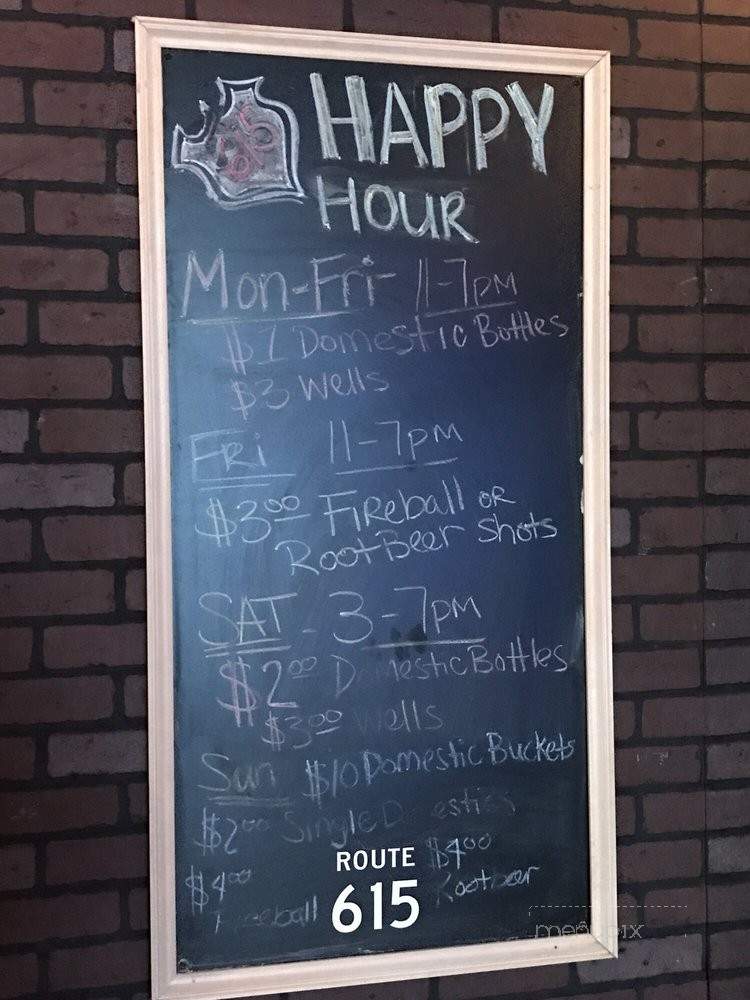 HAPPY
HOUR
Mon-Fri- 11-7pm
$1 Domestic Bottles
$3 wells
FRi 11-7pm
$3.00 FiReball oR
RootBeer Shots
SAT - 3-7pm
$2.00 Domestic Bottles
$3.00 wells
Sun $10 Domestic Buckets
$2.00 Single Domestics
$4.00 $4.00
Fireball Rootbeer
ROUTE
615
menupix